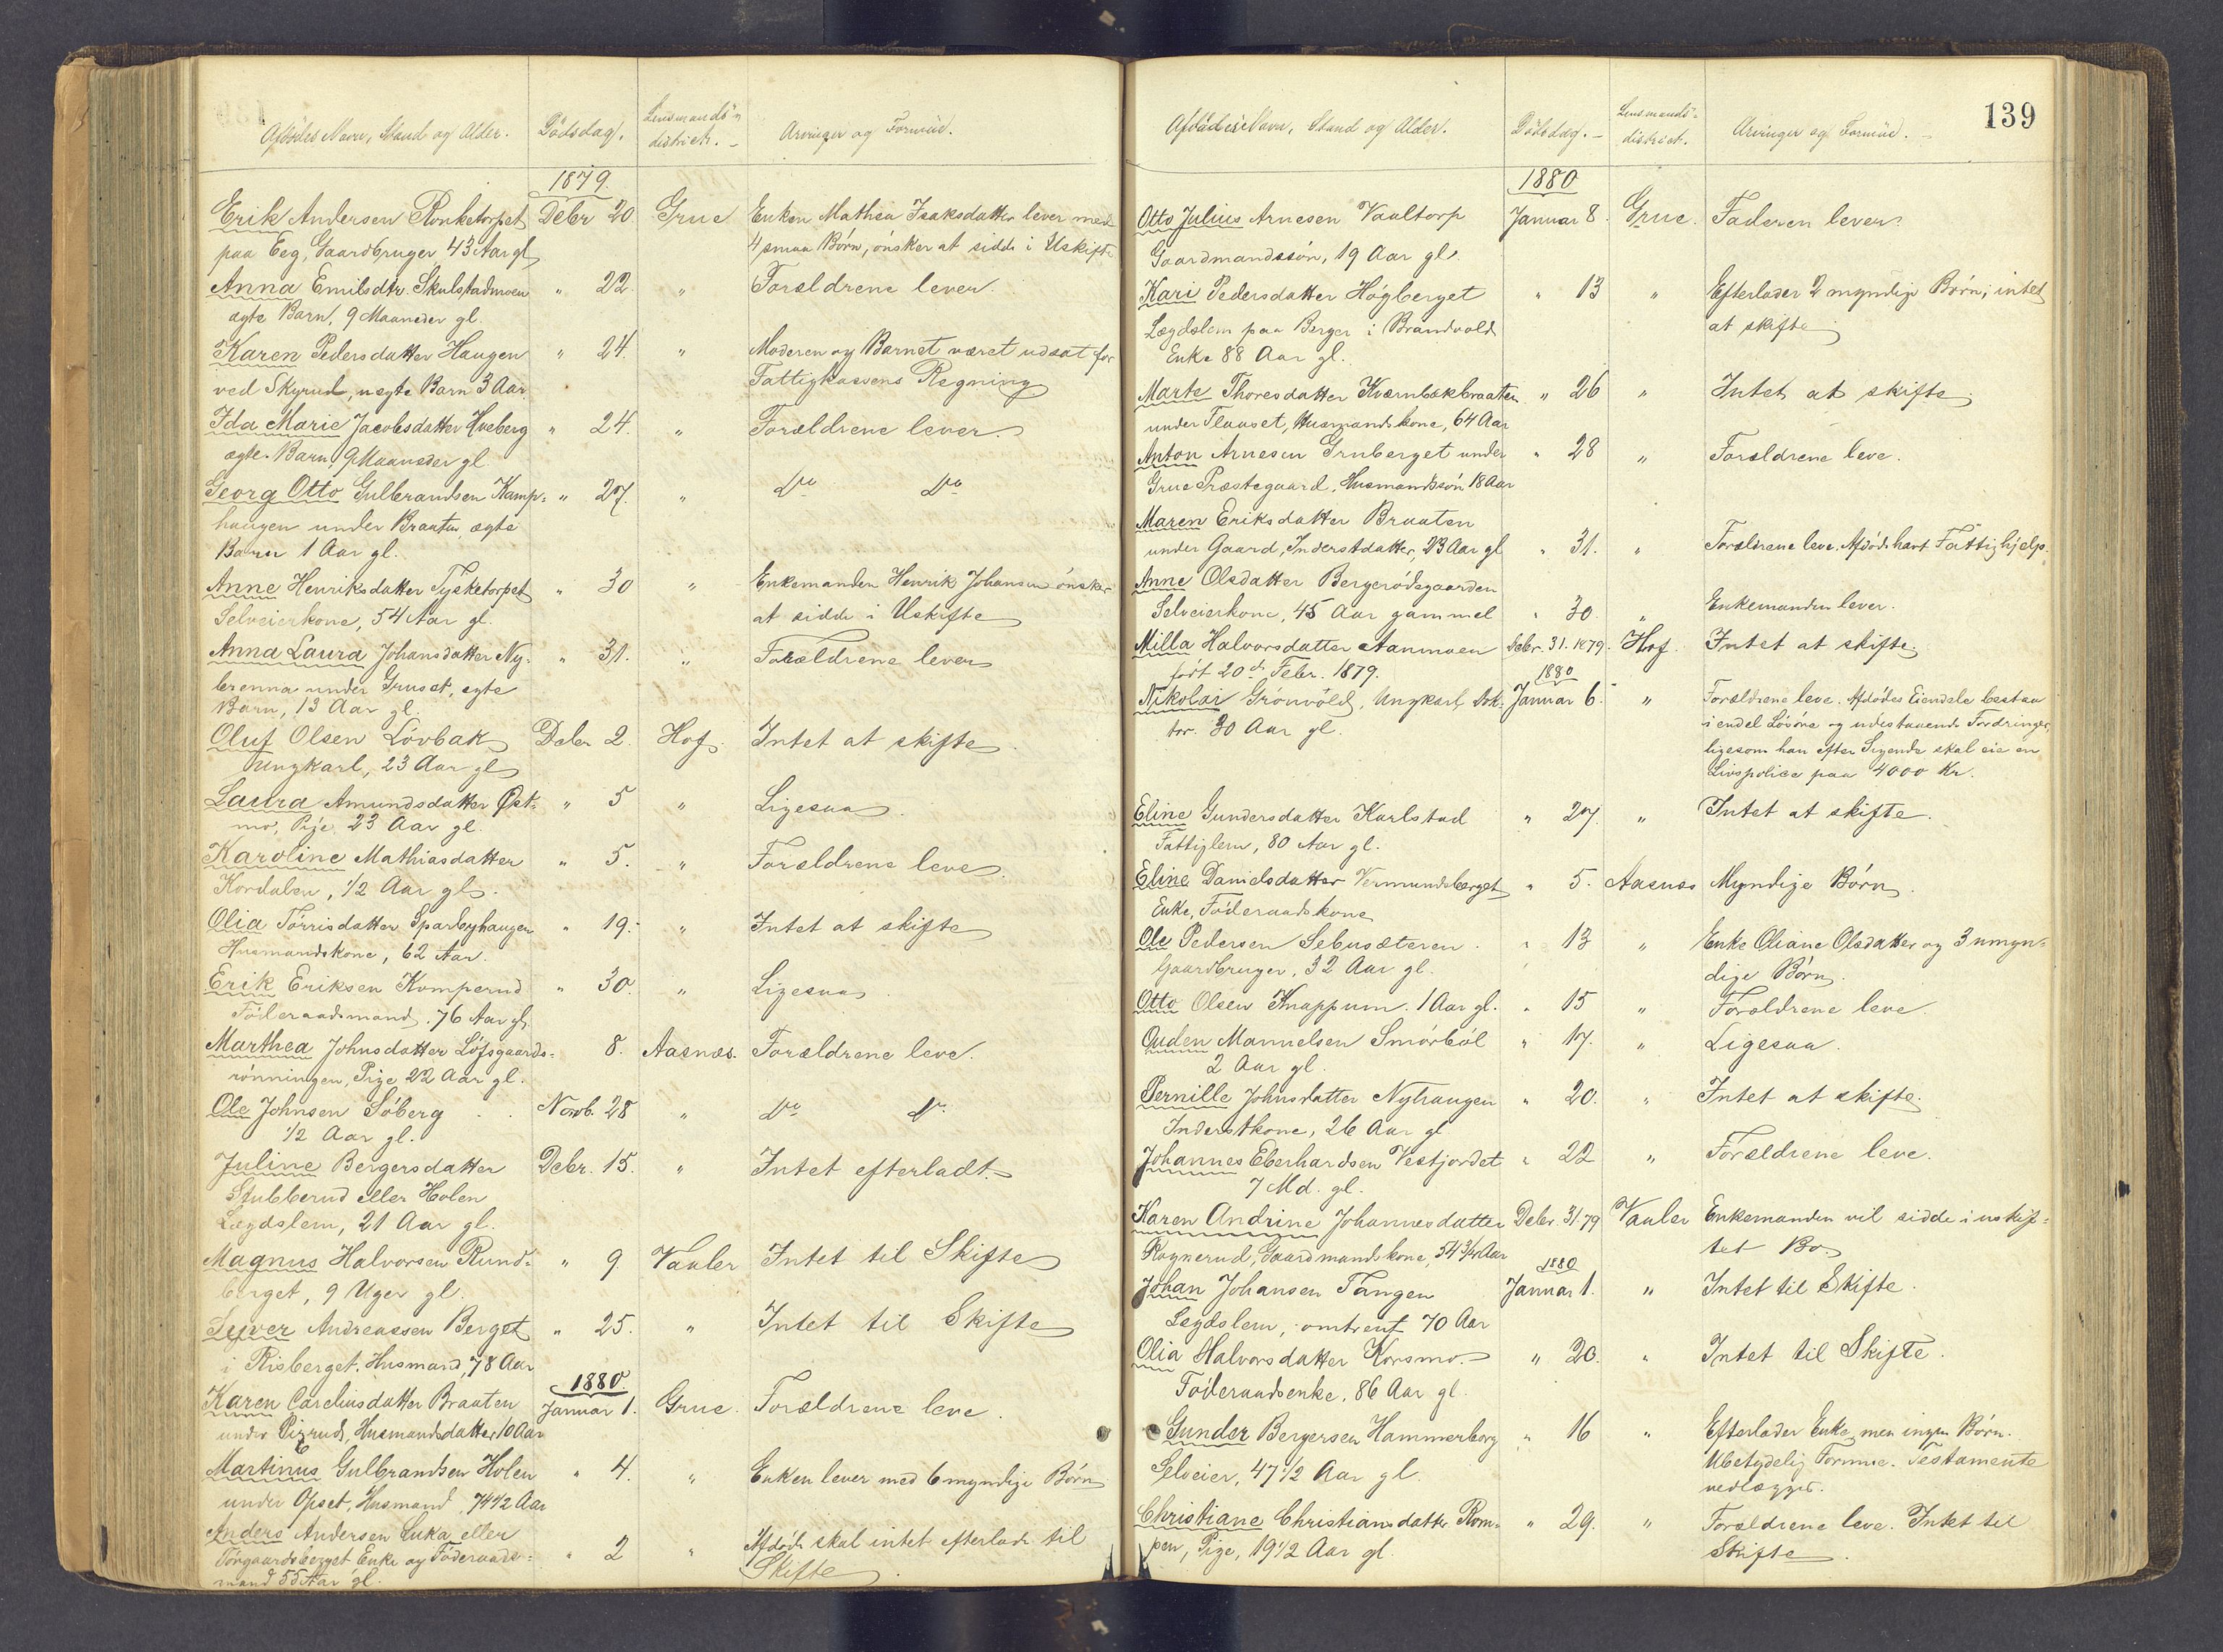 Afdödes Navn, Stand og Alder. Dödsdag. Lensmands-district. Arvinger og Formue.
1879.
Erik Andersen Ronketorpet Debr 20 Grue Enken Mathea Isaksdatter lever med
paa Eeg, Gaardbruger 43 Aar gl 4 smaa Börn, önsker at sidde i Uskifte
Anna Emilsdtr. Skulstadmoen " 22. " Forældrene lever.
ægte Barn, 9 Maaneder gl.
Karen Pedersdatter Haugen " 24. " Moderen og Barnet været udsat for
ved Skyrud, uægte Barn 3 Aar Fattigkassens Regning
Ida Marie Jacobsdatter Hveberg " 24. " Forældrene lever.
ægte Barn, 9 Maaneder gl
Georg Otto Gulbrandsen Kamp- " 27. " Do Do
haugen under Braaten, ægte
Barn 1 Aar gl.
Anne Henriksdatter Tysketorpet " 30 " Enkemanden Henrik Johansen önsker
Selveierkone, 54 Aar gl. at sidde i Uskifte
Anna Laura Johansdatter Ny- " 31. " Forældrene lever
brenna under Gruset, ægte
Barn, 13 Aar gl.
Oluf Olsen Lövbak Debr 2. Hof. Intet at skifte.
Ungkarl, 23 Aar gl
Laura Amundsdatter Øst- " 5 " Ligesaa.
mo, Pige 23 Aar gl.
Karoline Mathiasdatter " 5. " Forældrene leve.
Kordalen, 1/2 Aar gl.
Olia Törrisdatter Sparbyhaugen " 19. " Intet at skifte
Husmandskone, 62 Aar.
Erik Eriksen Komperud " 30. " Ligesaa.
Föderaadsmand. 76 Aar gl.
Marthea Johnsdatter Löfsgaards- 8. Aasnæs. Forældrene leve.
rönningen, Pige 22 Aar gl.
Ole Johnsen Söberg Novb. 28 " Do Do
1/2 Aar gl.
Juline Bergersdatter Debr. 15. " Intet efterladt.
Stubberud eller Holen
Lægdslem, 21 Aar gl.
Magnus Halvorsen Rund- " 9. Vaaler Intet til Skifte
berget, 9 Uger gl.
Syver Andreassen Berget " 25. " Intet til Skifte
i Risberget. Husmand, 78 Aar
1880.
Karen Careliusdatter Braaten Januar 1. Grue. Forældrene leve.
under Pizrud, Husmandsdatter 10 Aar
Martinus Gulbrandsen Holen " 4. " Enken lever med 6 myndige Börn
under Opset, Husmand, 74 1/2 Aar
Anders Andersen Luka eller " 2 " Afdöde skal intet efterlade til
Torgaardsberget Enke og Föderaads- Skifte.
mand 55 Aar gl.
139
Afdödes Navn, Stand og Alder. Dödsdag. Lensmands-district. Arvinger og Formue.
1880
Otto Julius Arnesen Vaaltorp Januar 8. Grue. Faderen lever.
Gaardmandssön, 19 Aar gl.
Kari Pedersdatter Högberget " 13 " Efterlader 2 myndige Börn; intet
Lægdslem paa Berger i Brandvold at skifte
Enke 88 Aar gl.
Marte Thoresdatter Kværnbækbraaten " 26 " Intet at skifte
under Flaaset, Husmandskone, 64 Aar
Anton Arnesen Gruberget under " 28 " Forældrene leve.
Grue Præstegaard, Husmandssön 18 Aar
Maren Eriksdatter Braaten
under Gaard, Inderstdatter, 23 Aar gl " 31. " Forældrene leve. Afdöde havt Fattighjelp.
Anne Olsdatter Bergerödegaarden
Selveierkone, 45 Aar gammel " 30. " Enkemanden lever.
Milla Halvorsdatter Aanmoen Debr. 31. 1879. Hof. Intet at skifte.
födt 20de Febr. 1879.
1880
Nikolai Grönvold, Ungkarl, Dok- Januar 6. " Forældrene leve. Afdödes Eiendele bestaa
tor. 30 Aar gl. i endel Lösöre og udestaaende Fordringer,
ligesom han efter Sigende skal eie en
Livspolice paa 4000 Kr.
Eline Gundersdatter Karlstad " 27. " Intet at skifte.
Fattiglem, 80 Aar gl.
Eline Danielsdatter Vermundsberget " 5. Aasnæs Myndige Börn.
Enke, Föderaadskone
Ole Pedersen Sebusæteren. " 13 " Enke Oliane Olsdatter og 3 umyn-
Gaardbruger, 32 Aar gl. dige Börn.
Otto Olsen Knappum. 1 Aar gl. " 15 " Forældrene leve.
Ouden Manuelsen Smörböl " 17. " Ligesaa.
2 Aar gl.
Pernille Johnsdatter Nyhaugen " 20. " Intet at skifte.
Inderstkone, 26 Aar gl
Johannes Eberhardsen Vestjordet " 22 " Forældrene leve.
7 Md. gl.
Karen Andrine Johannesdatter Debr. 31 79 Vaaler Enkemanden vil sidde i uskif-
Rognerud, Gaardmandskone, 54 3/4 Aar tet Bo.
1880
Johan Johansen Tangen Januar 1. " Intet til Skifte.
Lægdslem, omtrent 70 Aar
Olia Halvorsdatter Korsmo. " 20. " Intet til Skifte.
Föderaadsenke, 86 Aar gl.
Gunder Bergersen Hammerborg " 16 " Efterlader Enke, men ingen Börn.
Selveier, 47 1/2 Aar gl. Ubetydelig Formue. Testamente
vedlægges.
Christiane Christiansdatter Rom- " 29. " Forældrene leve. Intet til
pen, Pige, 19 1/2 Aar gl. Skifte.